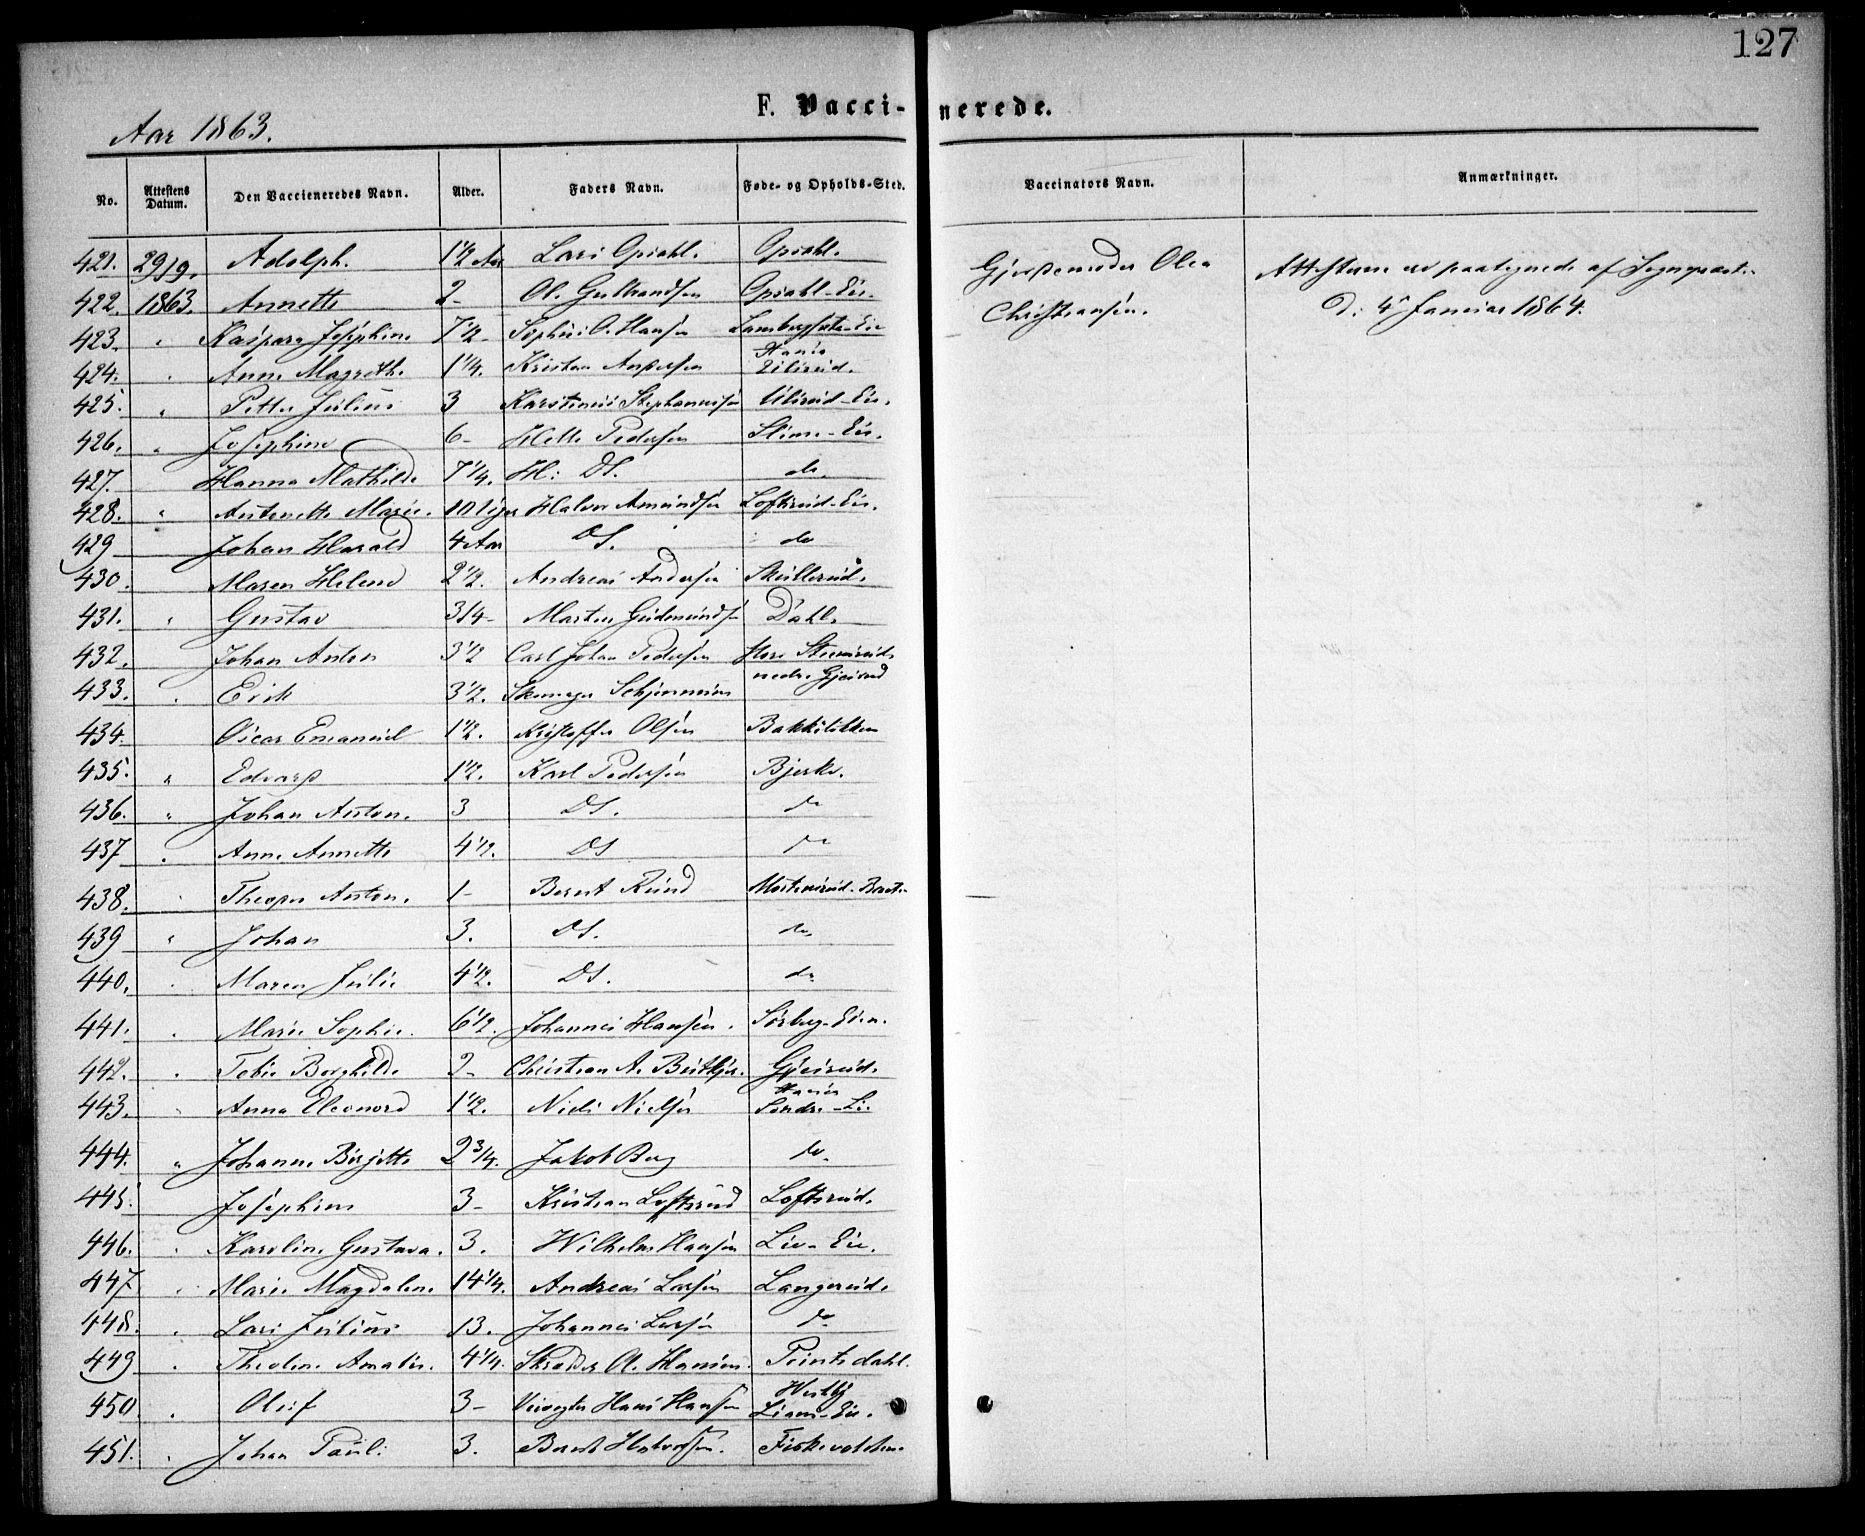 127
F. Vaccinerede.
Aar 1863.
No. Attestens Datum. Den Vaccieneredes Navn. Alder. Faders Navn. Føde- og Opholds-Sted. Vaccinators Navn. Anmærkninger.
421. 29/9. Adolph. 1 1/2 Aar Lars Opsahl. Opsahl. Gjordemoder Olea Attesterne er paategnede af Sognepræst
422. 1863. Annette 2- Ol. Gulbrandsen Opsahl-Eie. Christiansen. d. 4 Januar 1864.
423. " Kaspara Josephine 7 1/2- Hansen
424. Anne Magrethe 1 1/4. Kristian Andersen
425. " Petter Julius 3 Karstenius Stephansen Eie.
426. " Josephine 6- Helle Pedersen Eie.
427. Hanna Mathilde 7 1/4. H: DS. do.
428. " Antonette Marie. 10 Halvor Amundsen Loftsrud-Eie.
429 Johan Harald 4 Aar DS. do
430. Maren Helene 2 1/2. Andreas Andersen Skullerud.
431. " Gustav 3/4- Morten Gudmundsen Dahl.
432. Johan Anton 3 1/2 Carl Johan Pedersen Store Stensrud
433. " Erik 3 1/2. Skomager nedre Gjersrud
434. Oscar Emanuel 1 1/2. Kristoffer Olsen Bakkeløkken
435. " Edvard 1 1/2. Karl Pedersen Bjerke.
436. " Johan Anton. 3 DS. do
437 " Anne Annette 4 1/2. DS do
438. " Theodor Anton. 1- Bernt Ruud Mortensrud-
439 " Johan 3. DS. do
440. " Maren Julie 4 1/2. DS. do
441. " Marie Sophie. 6 1/2. Johannes Hansen. Eien.
442. " Borghilde 2- Christian A. Gjersrud.
443. " Anna Eleonore 1 1/2. Niels Nielsen Søndre-Li
444. " Johanne Birgitte 2 3/4. Jakob Berg do.
445. Josephine 3- Kristian Loftsrud Loftsrud.
446. " Karoline Gustava. 3. Wilhelm Hansen Eie.
447 " Marie Magdalene 14 1/4. Andreas Larsen Langerud.
448. " Lars Julius 13. Johannes Larsen do
449 " Theoline Amalie. 4 1/4. Skrædder O. Hansen.
450 " Oluf 3- Hans Hansen Eie.
451. " Johan Paul: 3. Bernt Halvorsen. Fiskevolden.